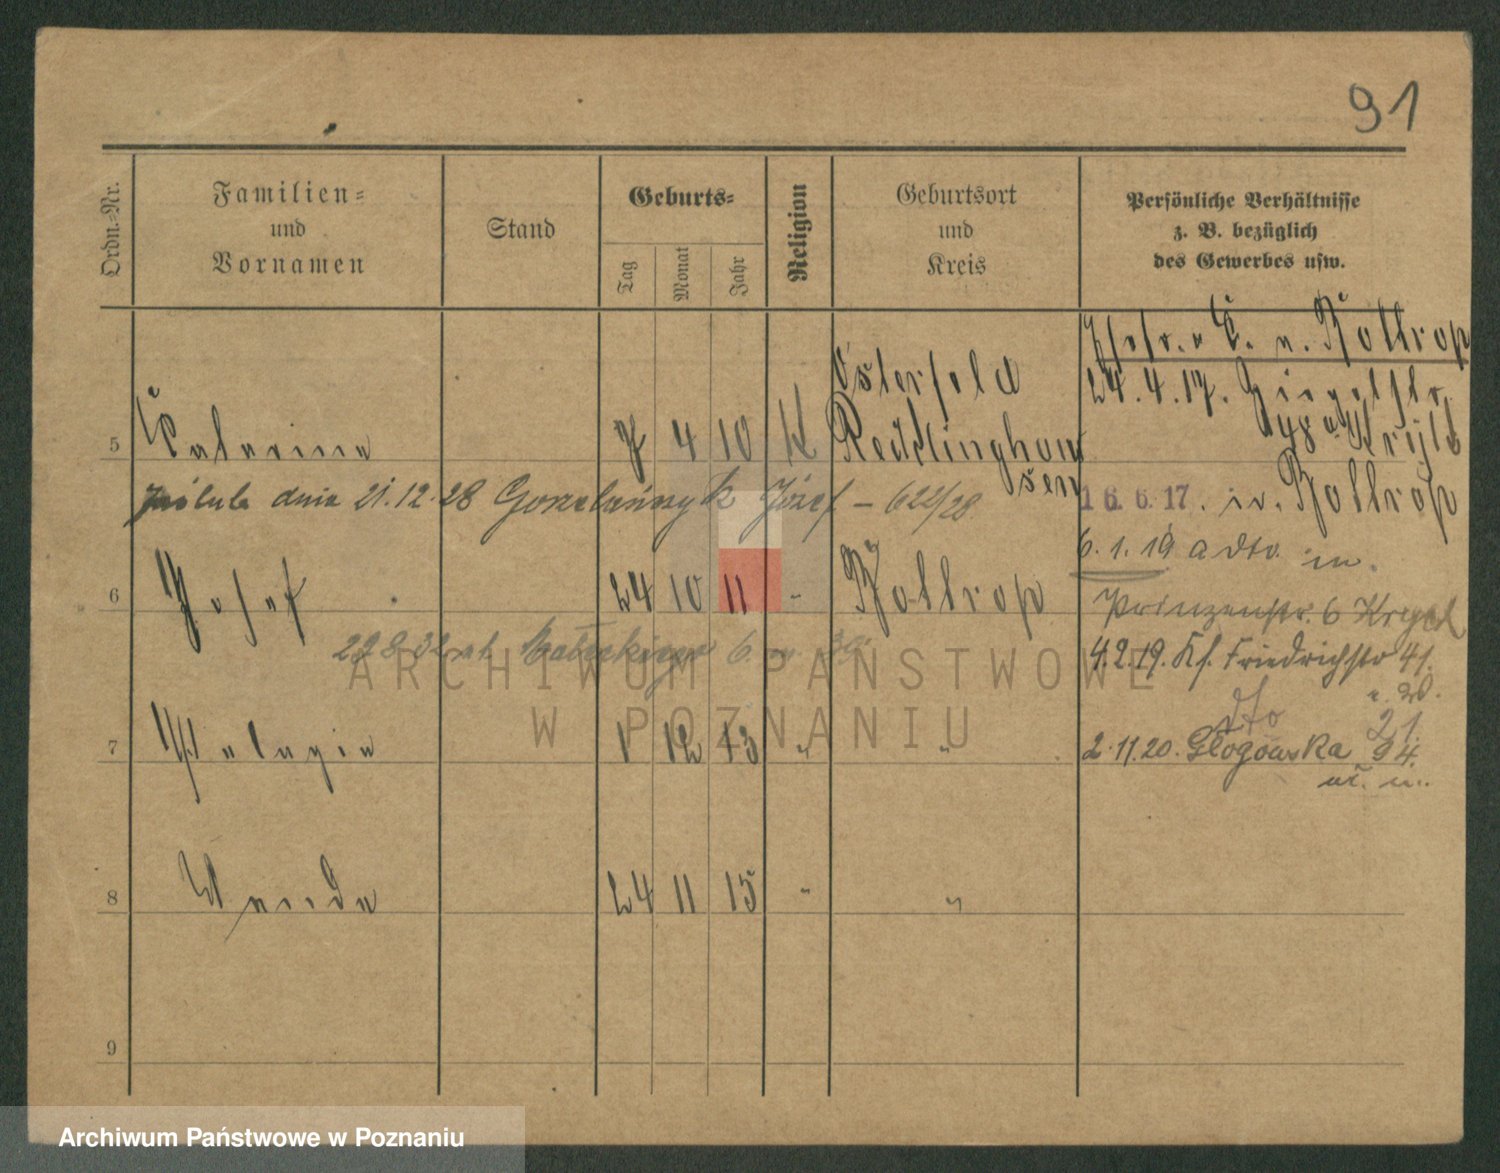 91
Ordn.-Nr.
Familien-
und
Vornamen
Stand
Geburts-
Tag
Monat
Jahr
Religion
Geburtsort
und
Kreis
Persönliche Verhältnisse
z. B. bezüglich
des Gewerbes usw.
Bottrop
Osterfeld
24.4.17.
5 Katarina 7 4 10 K Recklinghausen
dnia 21.12.28 Józef - 622/28
16.6.17. Bottrop
6.1.19 a dto. in.
6 Josef 24 10 11 " Bottrop
Prinzenstr. 6
4.2.19. Kf. Friedrichstr 41.
dto
21.
7 Pelagia 1 12 13 " "
2.11.20. Glogowska 94.
8 Wanda 24 11 15 " "
9
ARCHIWUM PAŃSTWOWE
W POZNANIU
Archiwum Państwowe w Poznaniu